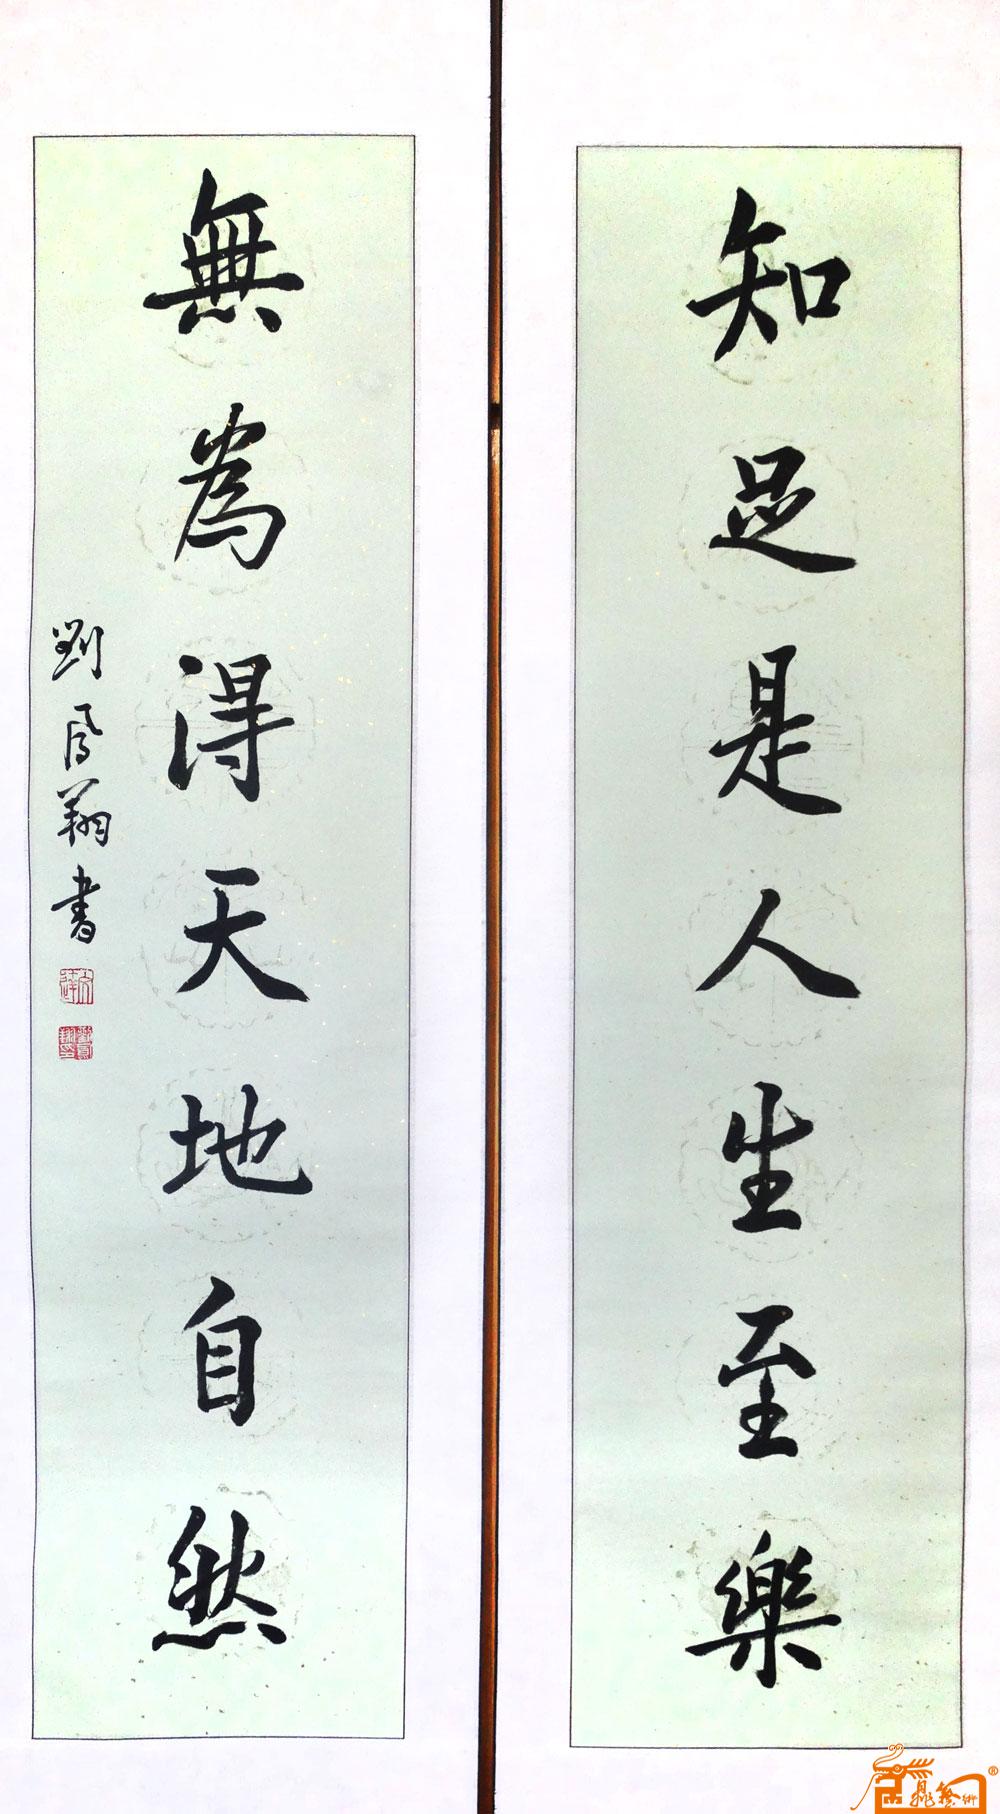 知足是人生至樂
無為得天地自然
劉鳳翔書